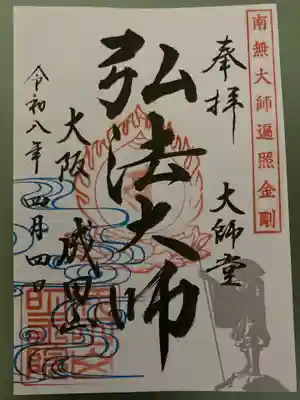 南無大師遍照金剛
奉拝
大師堂
弘法大師
大阪 成田山
令和八年 四月四日